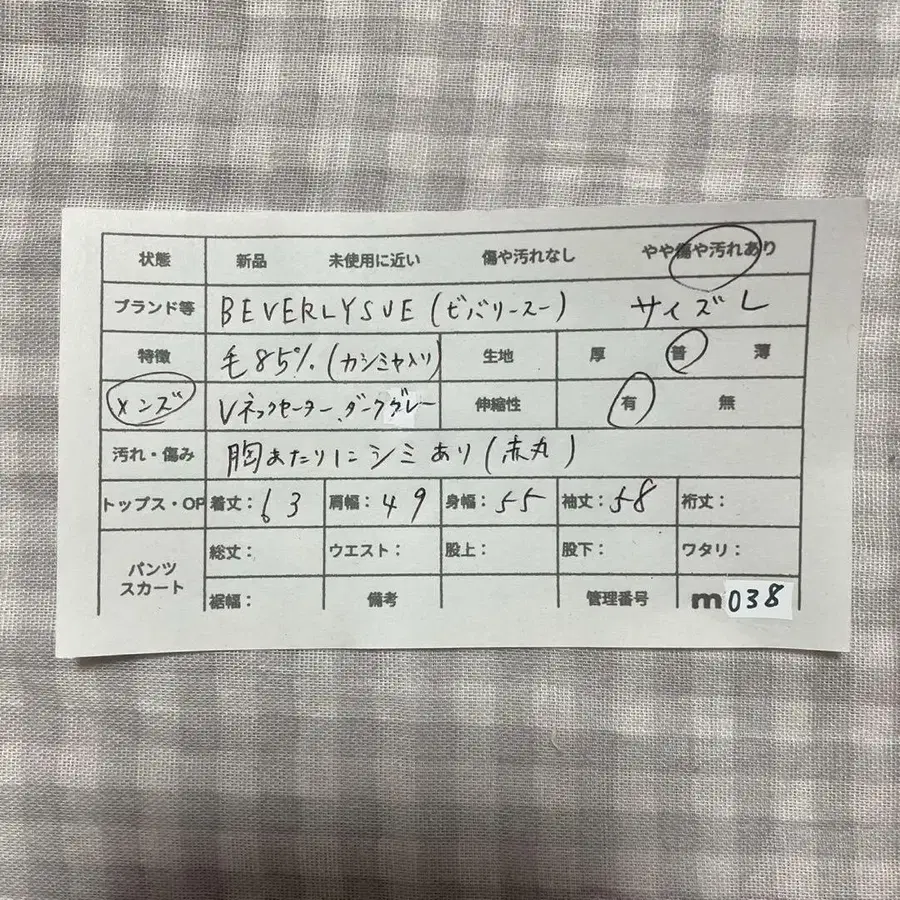 状態 新品 未使用に近い 傷や汚れなし やや傷や汚れあり
ブランド等 BEVERLYSUE (ビバリースー) サイズ L
特徴 毛85% (カシミヤ入り) 生地 厚 普 薄
メンズ Vネックセーター ダークグレー 伸縮性 有 無
汚れ・傷み 胸あたりにシミあり (赤丸)
トップス・OP 着丈：63 肩幅：49 身幅：55 袖丈：58 裄丈：
パンツ スカート 総丈： ウエスト： 股上： 股下： ワタリ：
裾幅： 備考 管理番号 m038